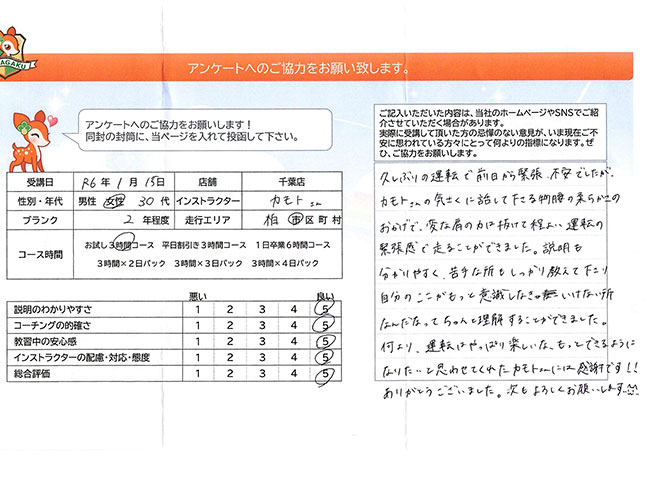 AGAKU
アンケートへのご協力をお願い致します。
アンケートへのご協力をお願いします！
同封の封筒に、当ページを入れて投函して下さい。
受講日 R6年 1月 15日 店舗 千葉店
性別・年代 男性 女性 30代 インストラクター カモトさん
ブランク 2年程度 走行エリア 柏 市区町村
コース時間 お試し3時間コース 平日割引き3時間コース 1日卒業6時間コース
3時間×2日パック 3時間×3日パック 3時間×4日パック
悪い 良い
説明のわかりやすさ 1 2 3 4 5
コーチングの的確さ 1 2 3 4 5
教習中の安心感 1 2 3 4 5
インストラクターの配慮・対応・態度 1 2 3 4 5
総合評価 1 2 3 4 5
ご記入いただいた内容は、当社のホームページやSNSでご紹
介させていただく場合があります。
実際に受講して頂いた方の忌憚のない意見が、いま現在ご不
安に思われている方々にとって何よりの指標になります。ぜ
ひ、ご協力をお願いします。
久しぶりの運転で前日から緊張、不安でしたが、
カモトさんの気さくに話して下さる物腰の柔らかさの
おかげで、変な肩の力は抜けて程よい運転の
緊張感で走ることができました。説明も
分かりやすく、苦手な所もしっかり教えて下さり
自分のここがもっと意識しなきゃいけない所
なんだなってちゃんと理解することができました。
何より、運転はやっぱり楽しいな、もっとできるように
なりたいと思わせてくれたカモトさんには感謝です！！
ありがとうございました。次もよろしくお願いします